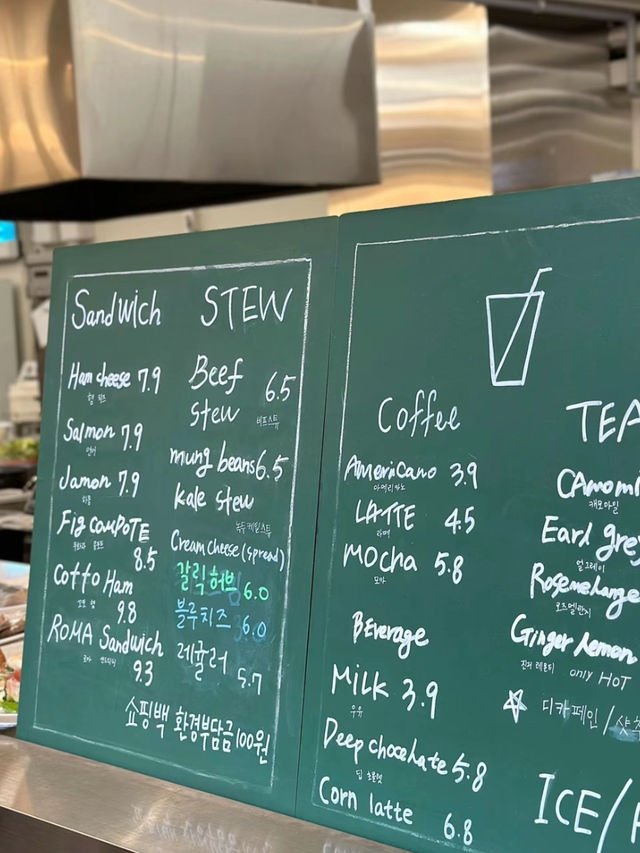 Sandwich
Ham cheese 7.9
햄 치즈
Salmon 7.9
연어
Jamon 7.9
하몽
Fig comPoTE
8.5
Cotto Ham
9.8
ROMA Sandwich
9.3
STEW
Beef
stew 6.5
비프스튜
mung beans 6.5
kale stew
녹두케일스튜
Cream cheese (spread)
갈릭허브 6.0
블루치즈 6.0
레귤러 5.7
쇼핑백 환경부담금 100원
Coffee
Americano 3.9
아메리카노
LATTE 4.5
라떼
MOcha 5.8
모카
BEverage
MiLK 3.9
우유
Deep chocolate 5.8
딥 초콜렛
Corn latte 6.8
TEA
CAmomi
캐모마일
Earl grey
얼그레이
로즈엘란지
Ginger Lemon
진저 레몬티 only HOT
☆ 디카페인 /
ICE/